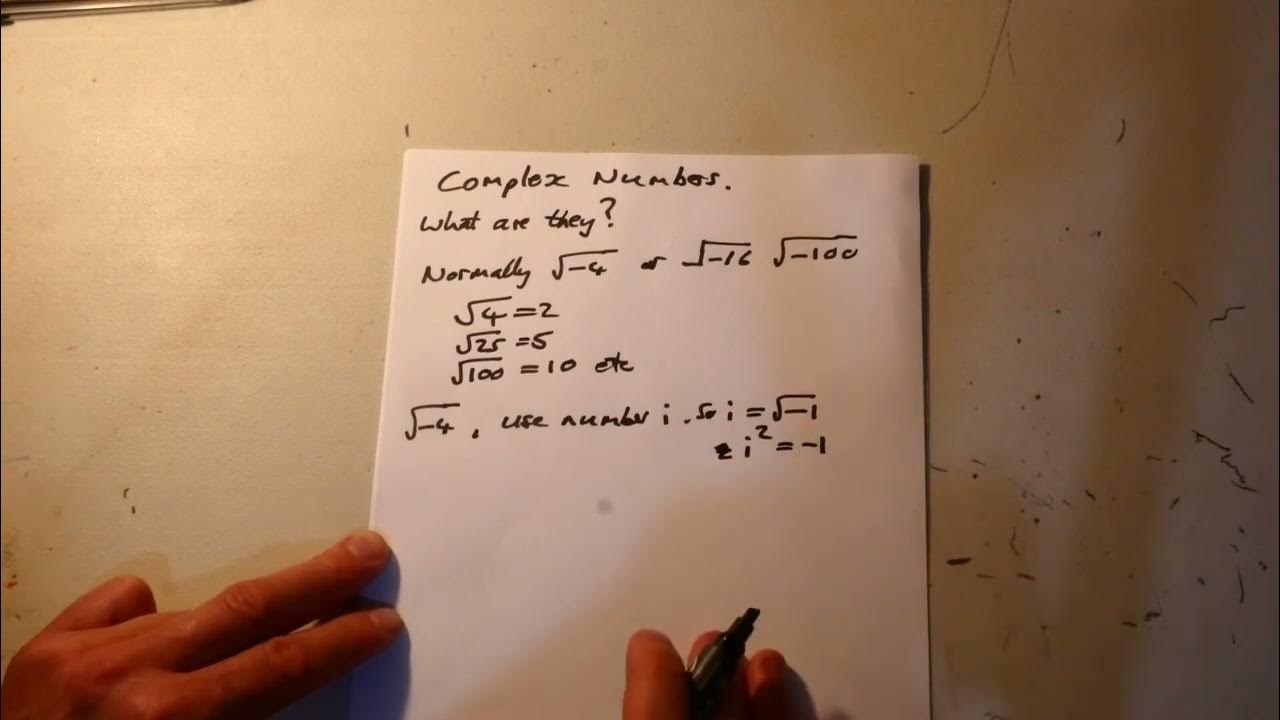 Complex Numbers.
What are they?
Normally √-4 or √-16 √-100
√4 = 2
√25 = 5
√100 = 10 etc
√-4, use number i. so i = √-1
i² = -1